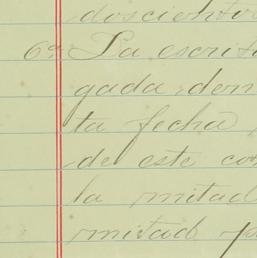 doscientos
6ª La escritu
gada den
ta fecha
de este co
la mitad
mitad p